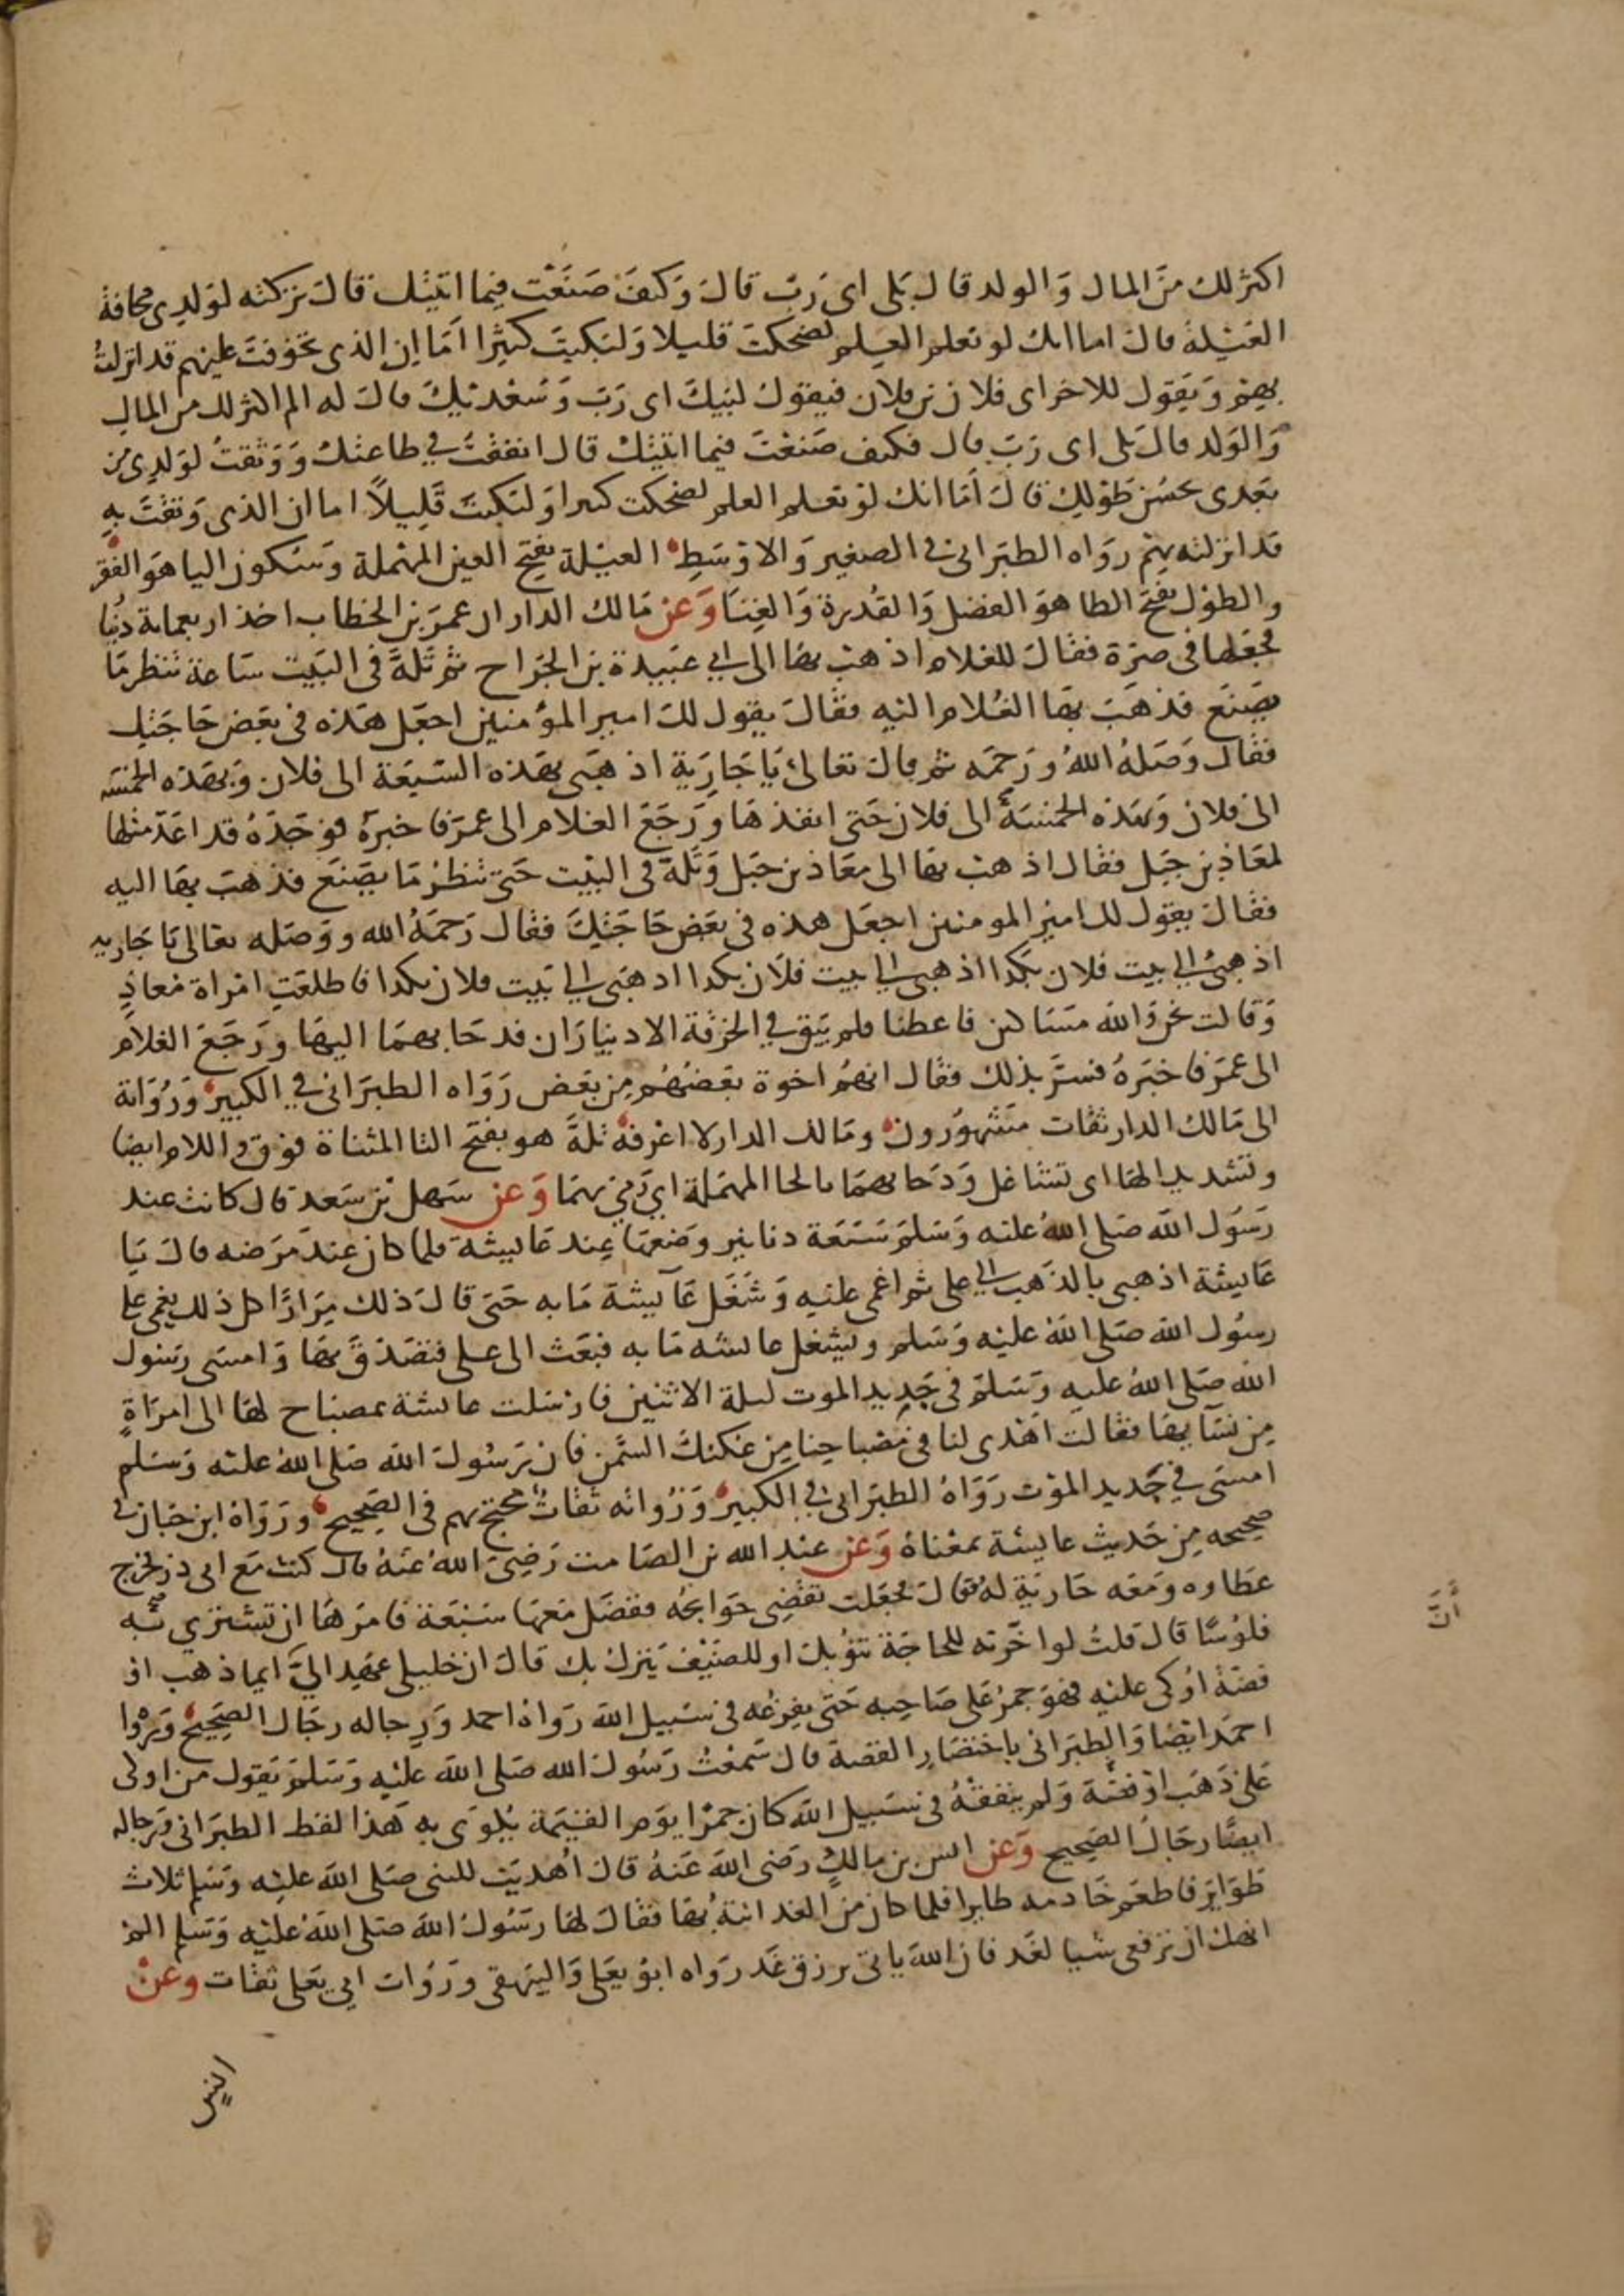 اكثر لك من المال والولد قال بلى اى رب قال وكيف صنعت فيما اتيتك قال تركته لولدى مخافة
العيلة قال اما انك لو تعلم العلم لضحكت قليلا ولبكيت كثيرا اما ان الذى تخوفت عليهم قد انزلت
بهم ويقول للاخر اى فلان بن فلان فيقول لبيك اى رب وسعديك قال له الم اكثر لك من المال
والولد قال بلى اى رب قال فكيف صنعت فيما اتيتك قال انفقت في طاعتك ووثقت لولدى من
بعدى بحسن طولك قال اما انك لو تعلم العلم لضحكت كثيرا ولبكيت قليلا اما ان الذى وثقت به
قد انزلته بهم رواه الطبرانى فى الصغير والاوسط العيلة بفتح العين المهملة وسكون اليا هو الفقر
والطول بفتح الطا هو الفضل والقدرة والغنا وعن مالك الدار ان عمر بن الخطاب اخذ اربعماية دينا
فجعلها فى صرة فقال للغلام اذهب بها الى ابي عبيدة بن الجراح ثم تله فى البيت ساعة تنظر ما
يصنع فذهب بها الغلام اليه فقال يقول لك امير المؤمنين اجعل هذه فى بعض حاجتك
فقال وصله الله ورحمه ثم قال تعالى يا جارية اذهبى بهذه السبعة الى فلان وبهذه الخمسه
الى فلان وبهذه الخمسة الى فلان حتى انفذها ورجع الغلام الى عمر فاخبره فوجده قد اعد مثلها
لمعاذ بن جبل فقال اذهب بها الى معاذ بن جبل وتله فى البيت حتى تنظر ما يصنع فذهب بها اليه
فقال يقول لك امير المومنين اجعل هذه فى بعض حاجتك فقال رحمه الله ووصله تعالى يا جاريه
اذهبى الي بيت فلان بكذا اذهبى الي بيت فلان بكذا اذهبى الي بيت فلان بكذا فاطلعت امراة معاذ
وقالت نحن والله مساكين فاعطنا فلم يبق في الخرقة الا ديناران فدحا بهما اليها ورجع الغلام
الى عمر فاخبره فسر بذلك فقال انهم اخوة بعضهم من بعض رواه الطبرانى في الكبير ورواته
الى مالك الدار ثقات مشهورون ومالك الدار لا اعرفه تله هو بفتح التا المثناة فوق واللام ايضا
وتشديد الها اى تتشاغل ودحا بهما بالحا المهملة اي رمى بهما وعن سهل بن سعد قال كانت عند
رسول الله صلى الله عليه وسلم سبعة دنانير وضعها عند عايشة فلما كان عند مرضه قال يا
عايشة اذهبى بالذهب الي على ثم اغمى عليه وشغل عايشة ما به حتى قال ذلك مرارا كل ذلك يغمى على
رسول الله صلى الله عليه وسلم ويشغل عايشه ما به فبعث الى على فتصدق بها وامسى رسول
الله صلى الله عليه وسلم فى جديد الموت ليلة الاثنين فارسلت عايشة بمصباح لها الى امراة
من نسايها فقالت اهدى لنا فى مصباحنا من عكتك السمن فان رسول الله صلى الله عليه وسلم
امسى في جديد الموت رواه الطبرانى في الكبير ورواته ثقات محتج بهم فى الصحيح ورواه ابن حبان فى
صحيحه من حديث عايشة بمعناه وعن عبد الله بن الصامت رضى الله عنه قال كنت مع ابى ذر فخرج
عطاوه ومعه جارية له قال فجعلت تقضى حوايجه ففضل معها سبعة فامرها ان تشترى به
فلوسا قال قلت لو اخرته للحاجة تنوبك او للضيف ينزل بك قال ان خليلى عهد الي ايما ذهب او
فضة اوكى عليه فهو جمر على صاحبه حتى يفرغه فى سبيل الله رواه احمد ورجاله رجال الصحيح ورواه
احمد ايضا والطبرانى باختصار القصة قال سمعت رسول الله صلى الله عليه وسلم يقول من اوكى
على ذهب او فضة ولم ينفقه فى سبيل الله كان جمرا يوم القيمة يكوى به هذا لفظ الطبرانى ورجاله
ايضا رجال الصحيح وعن انس بن مالك رضى الله عنه قال اهديت للنبى صلى الله عليه وسلم ثلاث
طواير فاطعم خادمه طايرا فلما كان من الغد اتته بها فقال لها رسول الله صلى الله عليه وسلم الم
انهك ان ترفعى شيا لغد فان الله ياتى برزق غد رواه ابو يعلى والبيهقى وروات ابي يعلى ثقات وعن
انس
ان